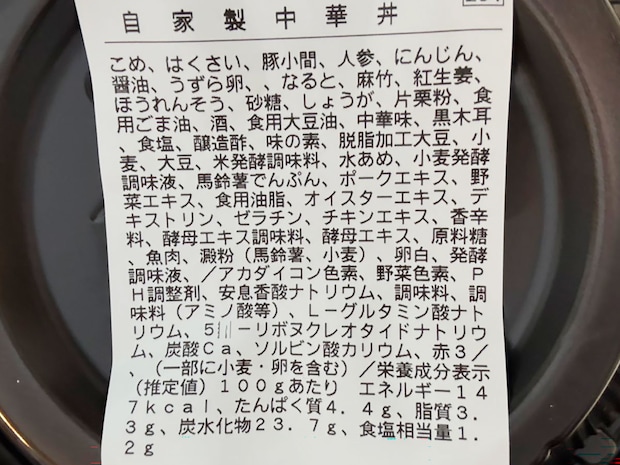 自家製中華丼
こめ、はくさい、豚小間、人参、にんじん、
醤油、うずら卵、、なると、麻竹、紅生姜、
ほうれんそう、砂糖、しょうが、片栗粉、食
用ごま油、酒、食用大豆油、中華味、黒木耳
、食塩、醸造酢、味の素、脱脂加工大豆、小
麦、大豆、米発酵調味料、水あめ、小麦発酵
調味液、馬鈴薯でんぷん、ポークエキス、野
菜エキス、食用油脂、オイスターエキス、デ
キストリン、ゼラチン、チキンエキス、香辛
料、酵母エキス調味料、酵母エキス、原料糖
、魚肉、澱粉（馬鈴薯、小麦）、卵白、発酵
調味液、／アカダイコン色素、野菜色素、Ｐ
Ｈ調整剤、安息香酸ナトリウム、調味料、調
味料（アミノ酸等）、Ｌーグルタミン酸ナト
リウム、５ーリボヌクレオタイドナトリウ
ム、炭酸Ｃａ、ソルビン酸カリウム、赤３／
、（一部に小麦・卵を含む）／栄養成分表示
（推定値）１００ｇあたり　エネルギー１４
７ｋｃａｌ、たんぱく質４．４ｇ、脂質３．
３ｇ、炭水化物２３．７ｇ、食塩相当量１．
２ｇ